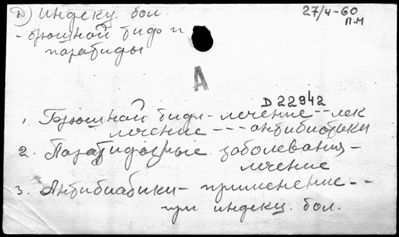 Д) Индекц. бол.
27/4-60
П.М
- брюшной тиф и
паратифы
А
D 22942
1. Брюшной тиф - лечение - - лек
лечение - - - антибиотики
2. Паратифозные заболевания -
лечение
3. Антибиабики - применение - -
при индекц. бол.